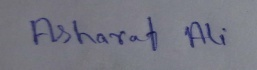 Asharaf Ali